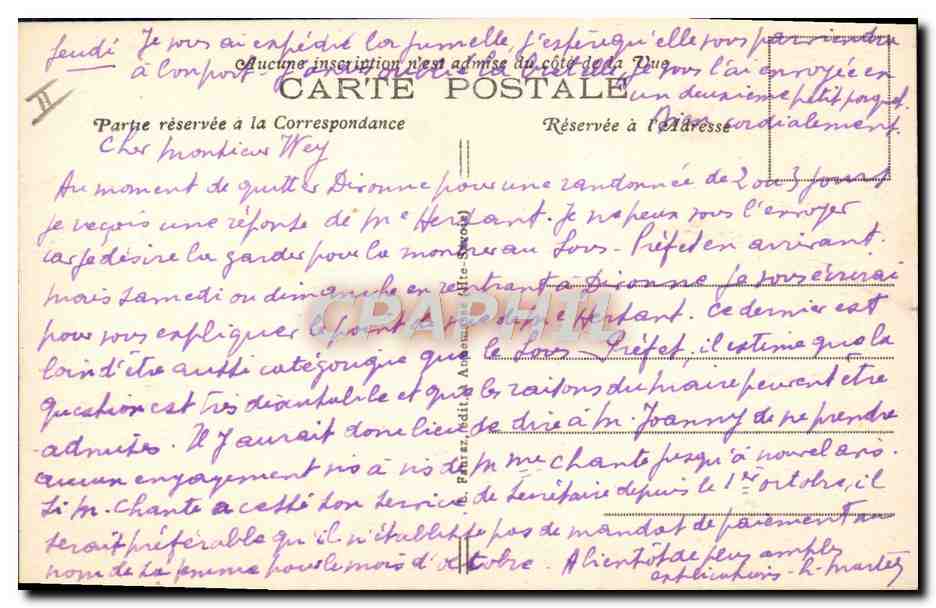 Jeudi Je vous ai expédié la jumelle, j'espère qu'elle vous parviendra
à bon port -
Je vous l'ai envoyée en
un deuxième petit paquet.
Bien cordialement.
II
Aucune inscription n'est admise du côté de la Vue
CARTE POSTALE
Partie réservée à la Correspondance
Réservée à l'Adresse
Cher Monsieur Wey
Au moment de quitter Divonne pour une randonnée de 2 ou 3 jours
je reçois une réponse de Me Herbant. Je ne peux vous l'envoyer
car je désire la garder pour la montrer au Sous-Préfet en arrivant.
mais samedi ou dimanche en rentrant à Divonne je vous écrirai
pour vous expliquer le point de vue de Me Herbant. Ce dernier est
loin d'être aussi catégorique que le Sous-Préfet, il estime que la
question est très discutable et que les raisons du maire peuvent être
admises. Il y aurait donc lieu de dire à M. Joanny de ne prendre
aucun engagement vis à vis de Mme Chante jusqu'à nouvel avis.
Si M. Chante a cessé son service de secrétaire depuis le 1er octobre, il
serait préférable qu'il n'établisse pas de mandat de paiement au
nom de sa femme pour le mois d'octobre. A bientôt de plus amples
explications -
Fauraz, édit., Annemasse (Hte-Savoie)
CPAPHIL